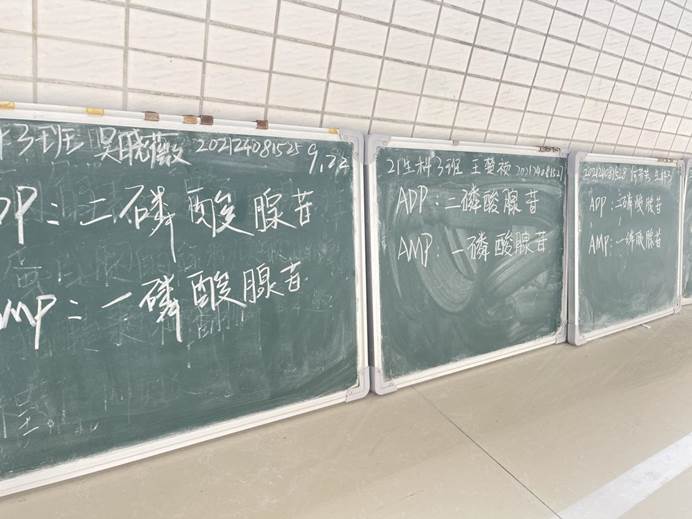 科3班 吴晓薇 202124081525 9.22
DP：二磷酸腺苷
AMP：一磷酸腺苷
21生科3班 王楚 202124081521
ADP：二磷酸腺苷
AMP：一磷酸腺苷
ADP：二磷酸腺苷
AMP：一磷酸腺苷